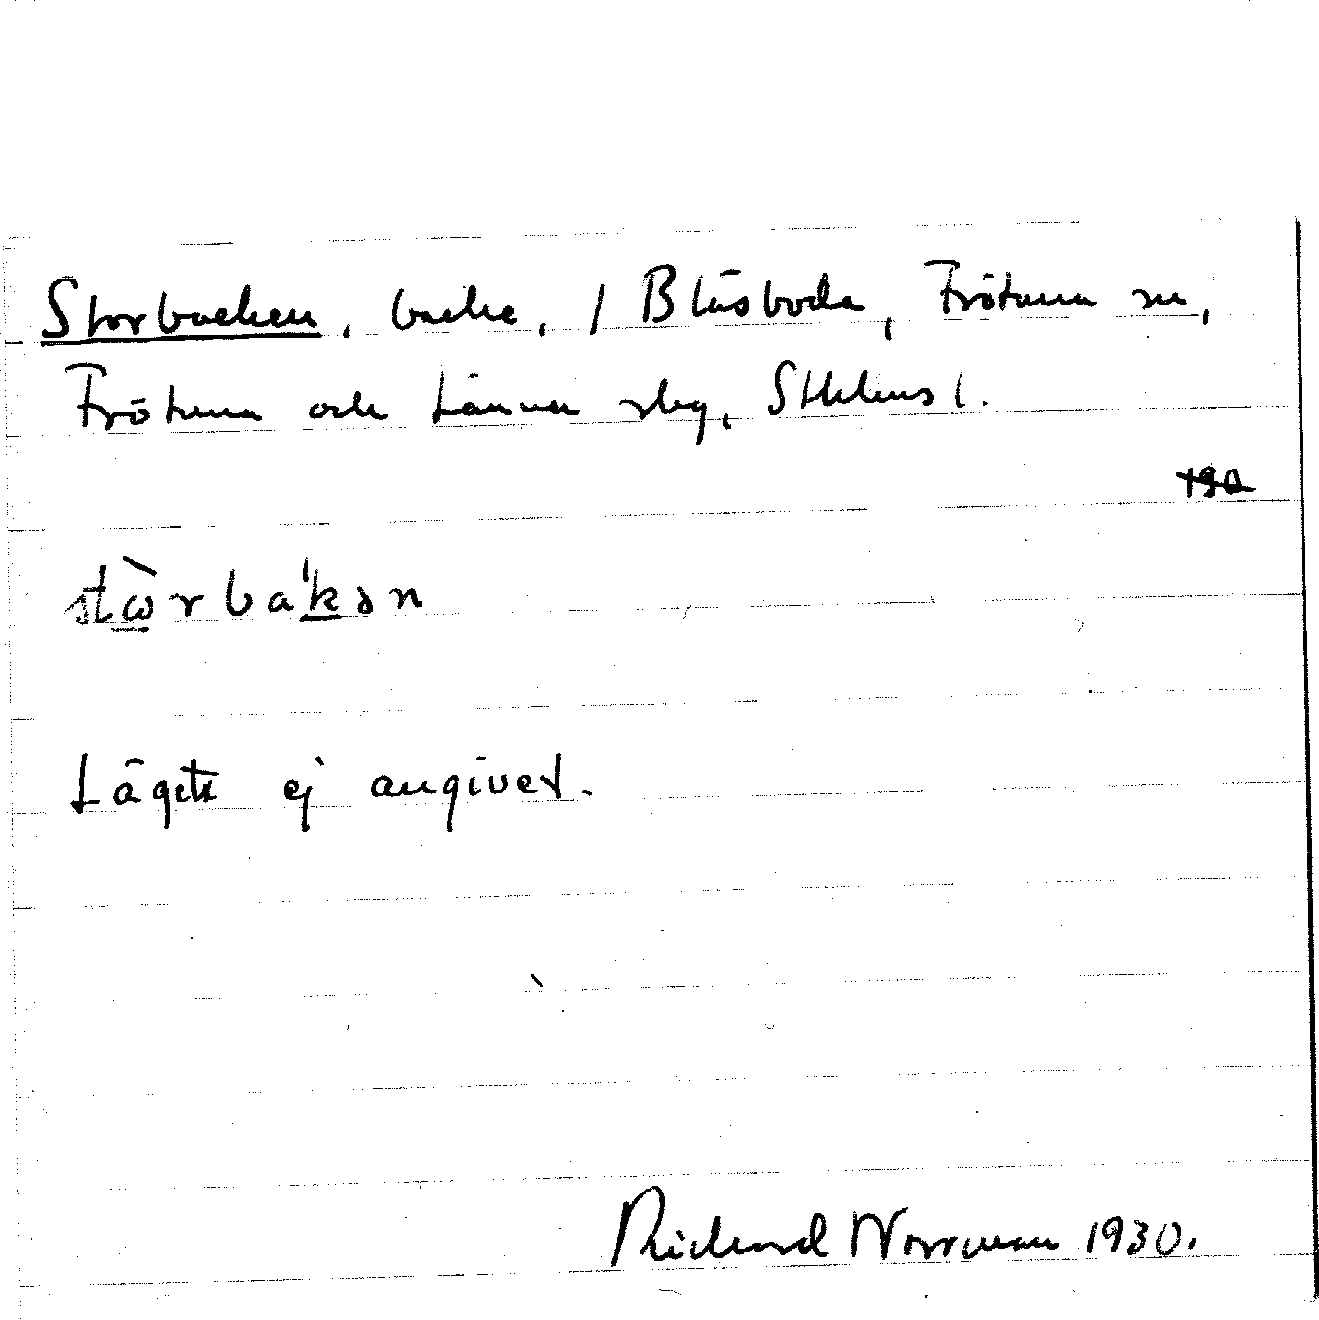 Storbacken, backe, / Blåsboda, Frötuna sn,
Frötuna och Länna skg, Sthlms l.
190
stὼrba'kən
Läget ej angivet.
Richard Norrman 1930.